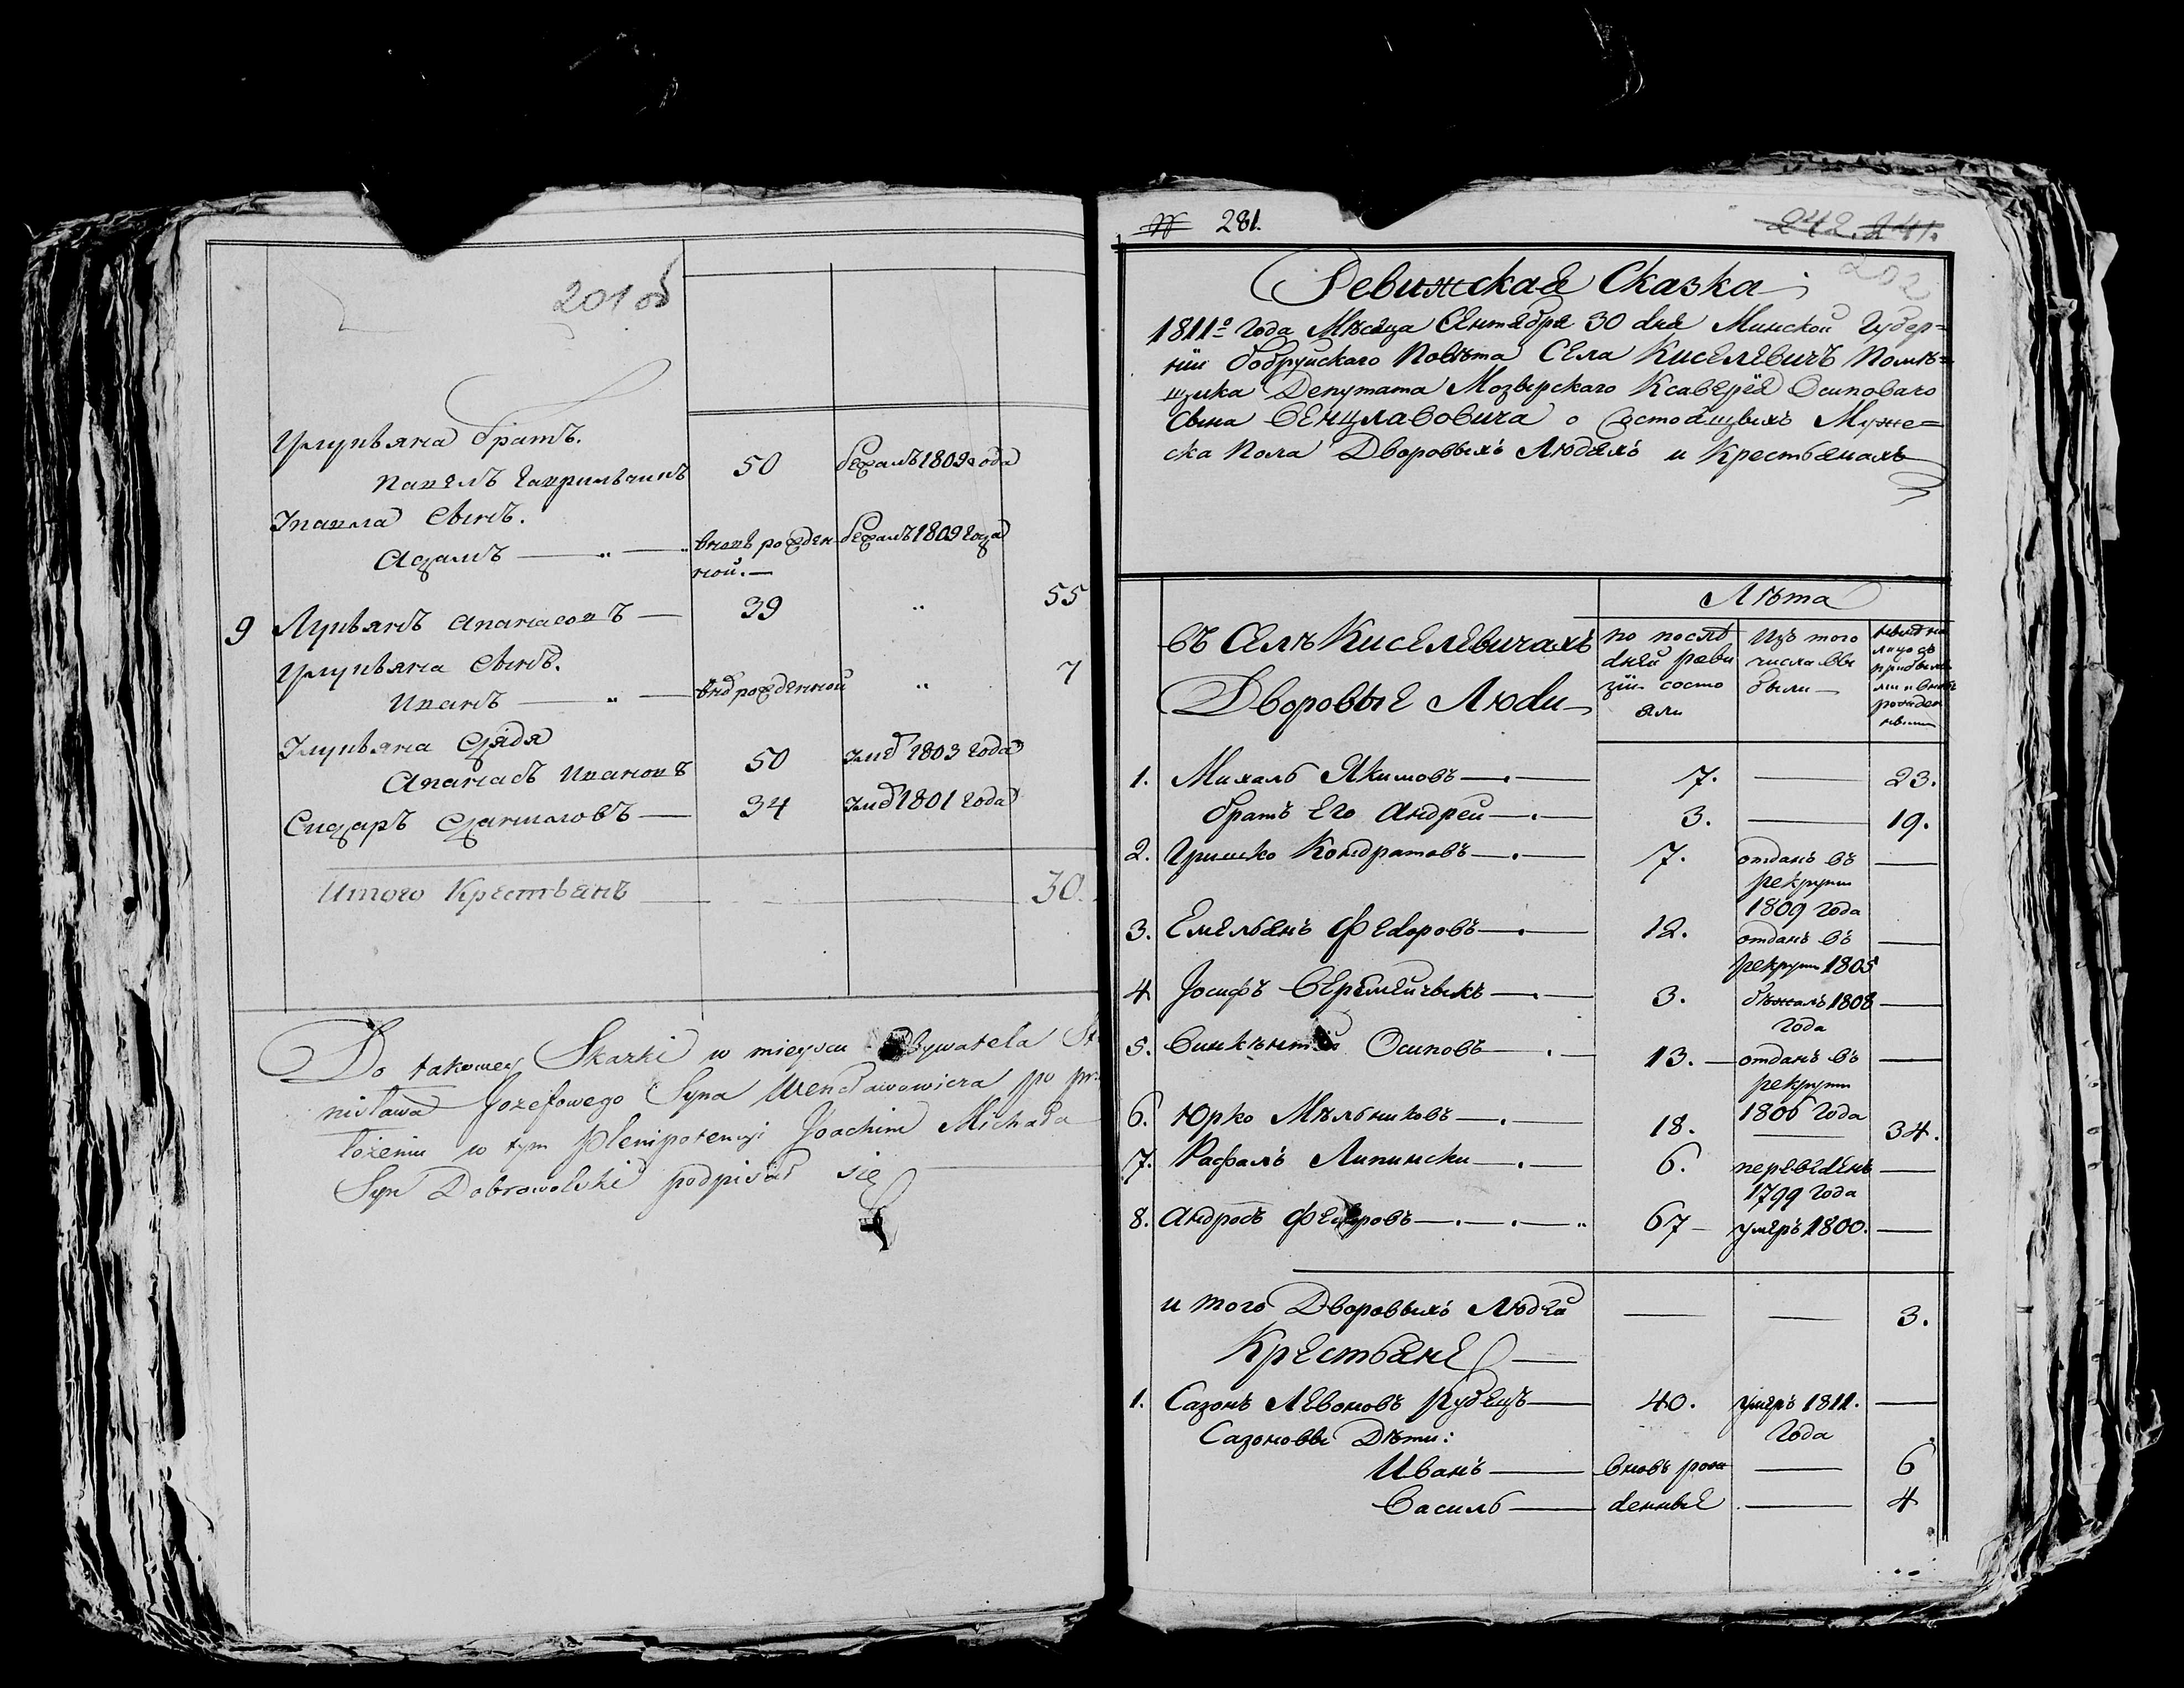 201 об
Улукьяна братъ.
Павелъ Гаврильчикъ 50 бежалъ 1809 года
Упавла сынъ.
Адамъ — „ — вновь рожден- бежалъ 1809 года
ной. —
9 Лукьянъ Апанасовъ — 39 „ 55
Улукьяна сынъ.
Иванъ — „ — внд рожденной „ 7
Улукьяна дядя
Апанасъ Ивановъ 50 умр 1803 года
Сидаръ Даниловъ — 34 умр 1801 года
Итого Крестьянъ — 30.
Do takowey Skazki w mieyscu Obywatela St
nisława Jozefowego Syna Wencławowicza po
łożeniu w tym Plenipotencyi Joachim Michała
Syn Dobrowolski podpisał się
№ 281.
242. 241.
202
Ревижская Сказка
1811го Года Мѣсяца Сентября 30 дня Минской Губер=
нїи Бобруйскаго Повѣта Села Киселевичъ Помѣ=
щика Депутата Мозырскаго Ксаверїя Осиповаго
Сына Венцлавовича о Состоящыхъ Муже=
ска Пола Дворовыхъ Людяхъ и Крестьянахъ
Лѣта
Въ Селѣ Киселевичахъ
Дворовые Люди
по послѣ
дней реви
зїи состо
яли
Изъ того
числа вы
были —
ныне на
лицо съ
прибылы
ми и вновь
рожден
ными
1. Михаль Якимовъ — 7. — 23.
братъ Его Андрей — 3. — 19.
2. Гришко Кондратовъ — 7. отданъ въ —
рекруты
1809 года
3. Емельянъ Федоровъ — 12. отданъ въ —
рекруты 1805
4 Јосифъ Веремейчыкъ — 3. бѣжалъ 1808 —
года
5. Винкентїй Осиповъ — 13. — отданъ въ —
рекруты
1806 года
6. Юрко Мѣльниковъ — 18. — 34.
7. Рафалъ Липински — 6. переведенъ —
1799 года
8. Андросъ Федоровъ — 67 — умеръ 1800. —
и того Дворовыхъ Людей — — 3.
Крестьяне —
1. Сазонъ Левоновъ Рубецъ — 40. умеръ 1811. —
года
Сазоновы Дѣти:
Иванъ — вновь рож — 6
Василь — денные — 4